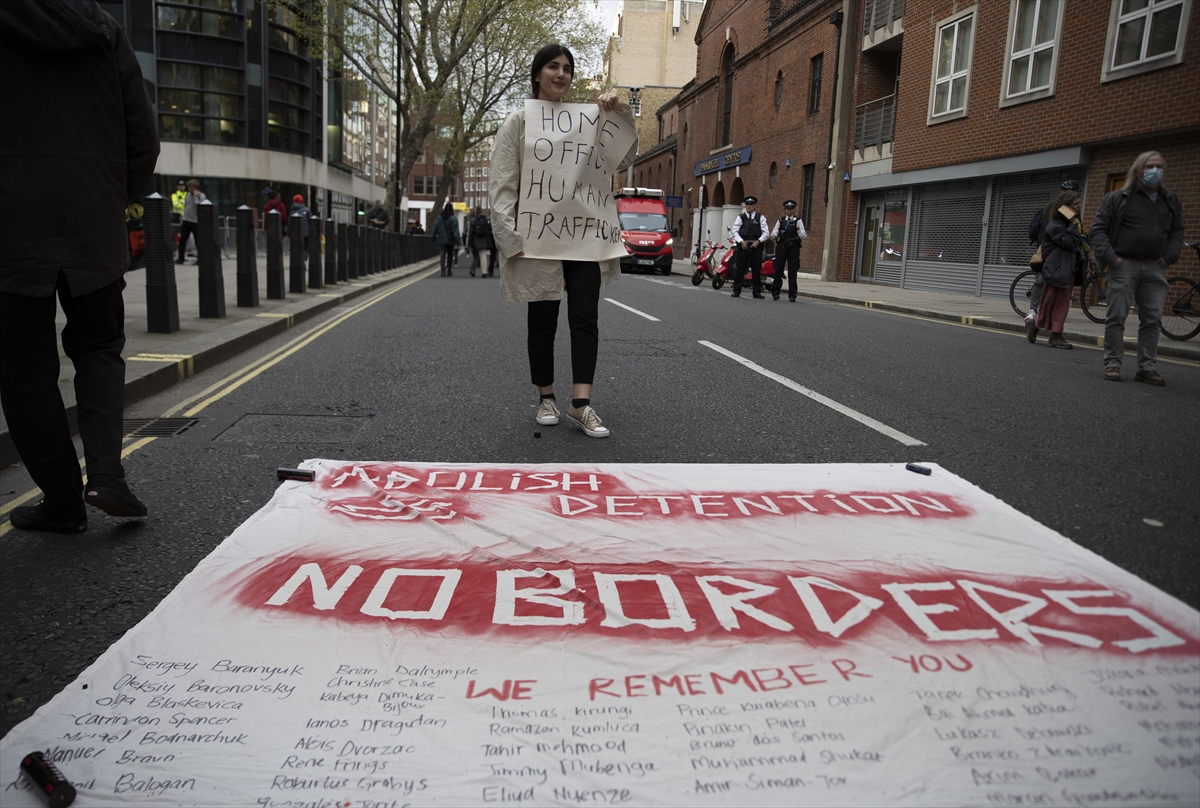 HOME
OFFICE
HUMAN
TRAFFICKER
IVECO
ABOLISH
DETENTION
NO BORDERS
WE REMEMBER YOU
Sergey Baranyuk
Oleksiy Baronovsky
Olga Blaskevica
Carrington Spencer
Bodnarchuk
Manuel Bravo
Balogan
Brian Dalrymple
Christine Case
Kabeya Dimuka-
Bijoux
Ianos Dragutan
Alois Dvorzac
Rene Frings
Robertus Grabys
Thomas Kirungi
Ramazan Kumluca
Tahir Mehmood
Jimmy Mubenga
Eliud Nyenze
Prince Kwabena
Pinakin Patel
Bruno dos Santos
Muhammad Shukat
Amir Siman-Tov
Tarek Chowdhury
Bai Ahmed Kabia
Lukasz
Branko Zdravkovic